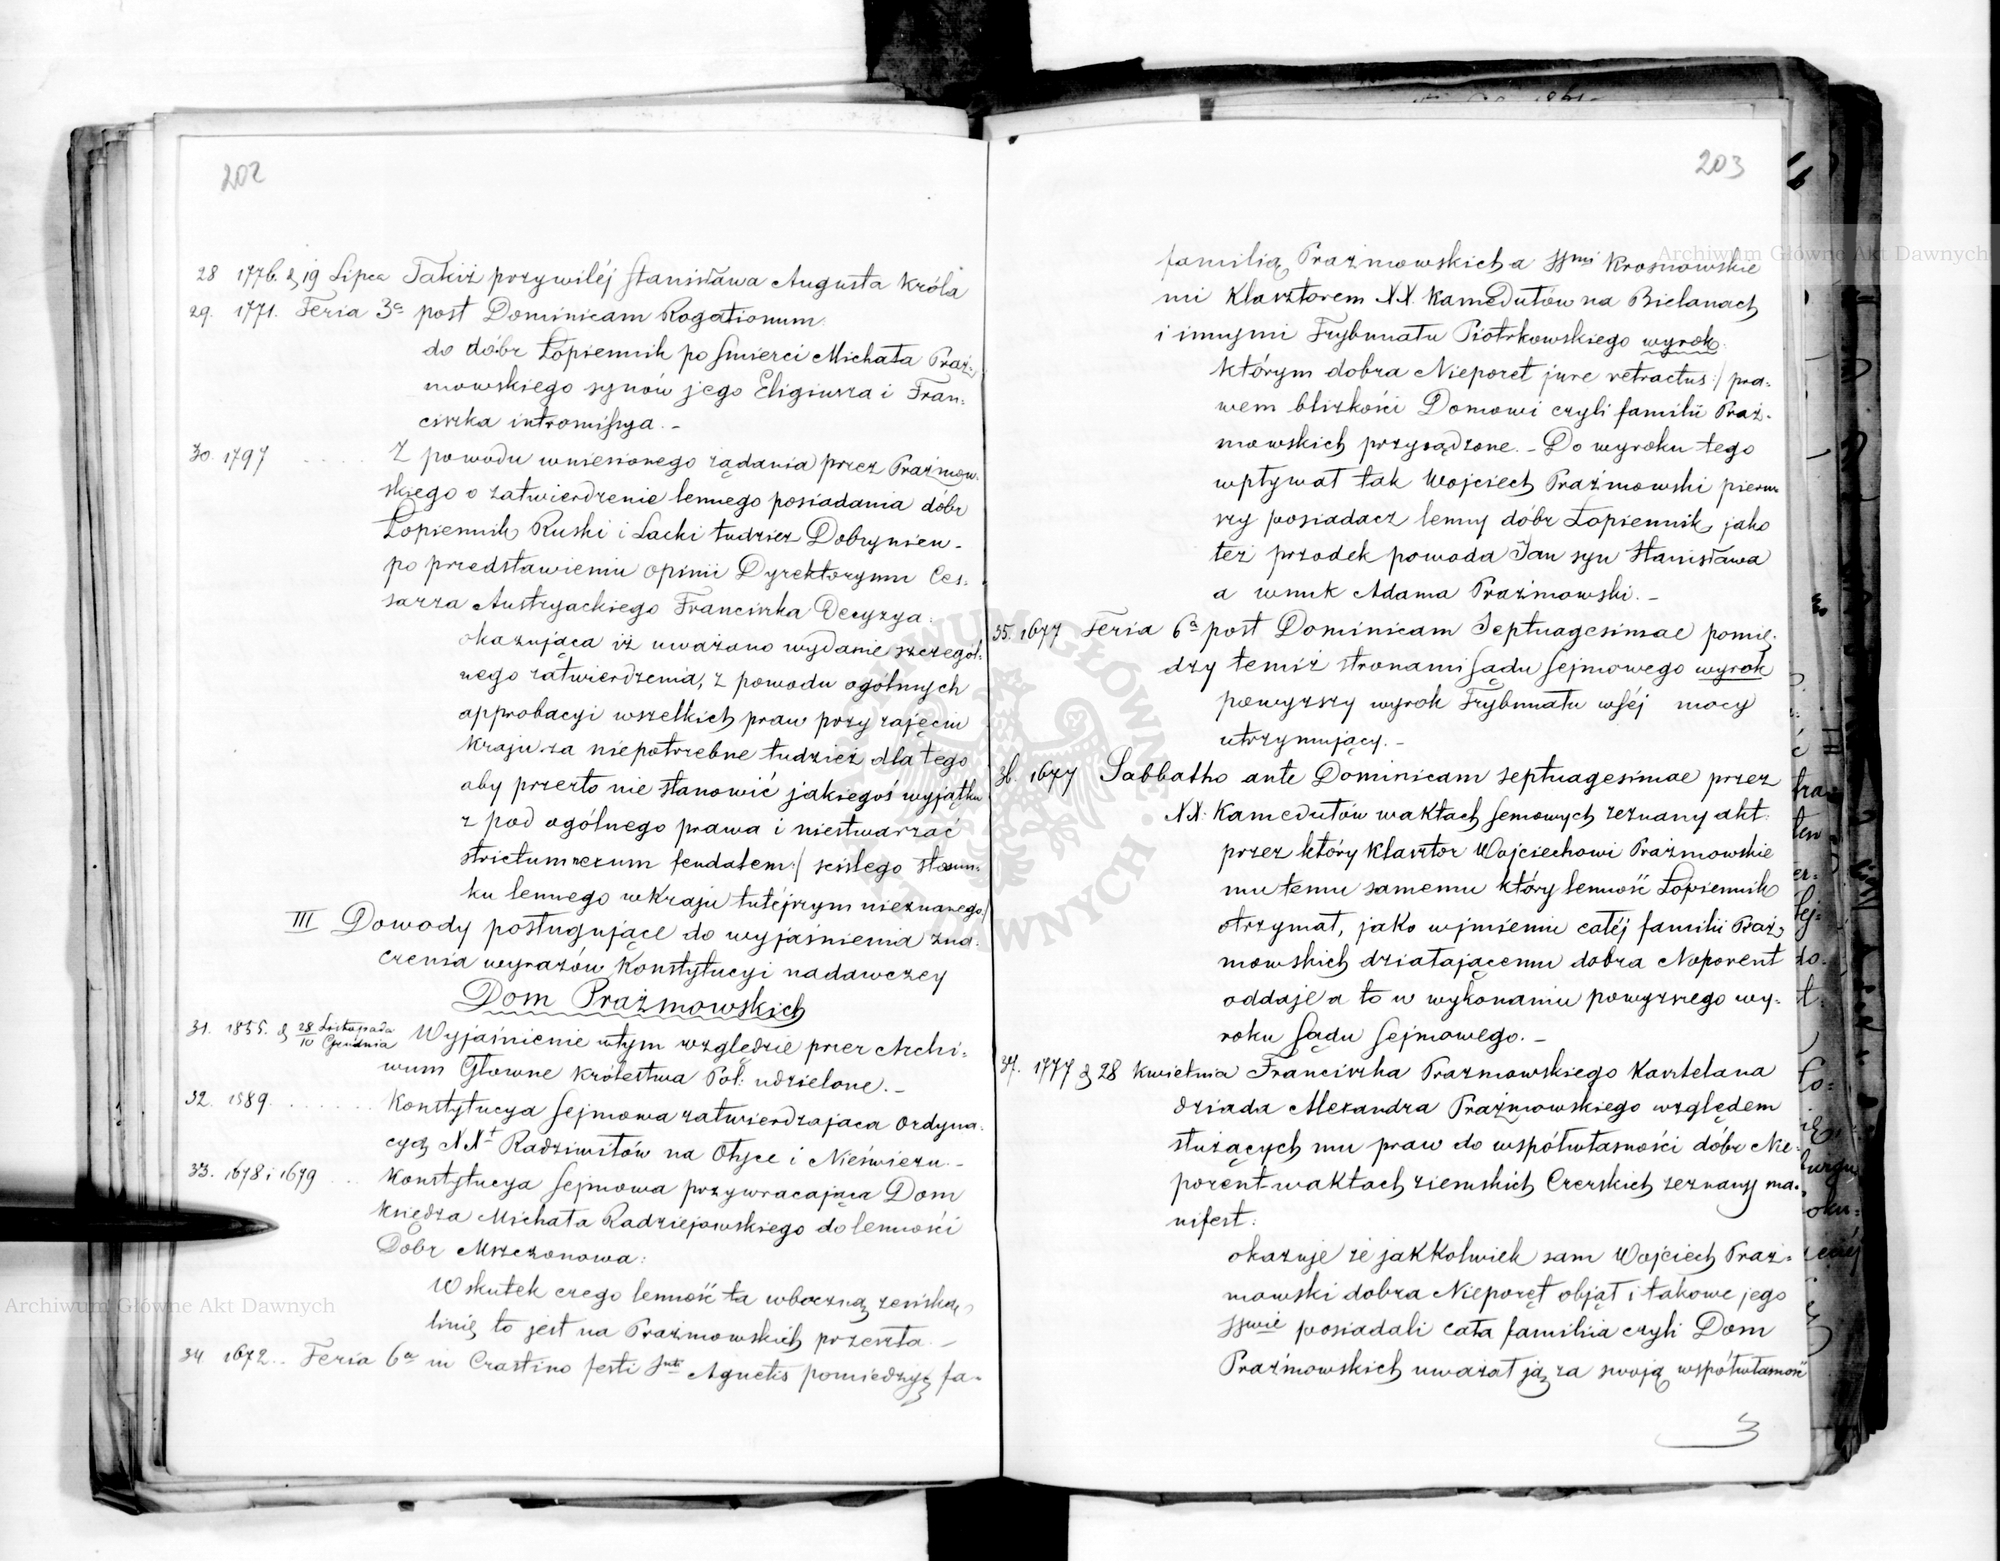 202
28 1776. d. 19 Lipca Takiż przywiléj Stanisława Augusta Króla
29. 1771. Feria 3a post Dominicam Rogationum
do dóbr Łopiennik po śmierci Michała Praż-
mowskiego synów jego Eligiusza i Fran-
ciszka intromissya. -
30. 1797 ..... Z powodu wniesionego żądania przez Prażmow-
skiego o zatwierdzenie lennego posiadania dóbr
Łopiennik Ruski i Lacki tudzież Dobryniew -
po przedstawieniu opinii Dyrektoryum Ces-
sarza Austryackiego Franciszka Decyzya:
okazująca iż uważano wydanie szczegól-
nego zatwierdzenia, z powodu ogólnych
approbacyi wszelkich praw przy zajęciu
Kraju za niepotrzebne tudzież dla tego
aby przezto nie stanowić jakiegoś wyjątku
z pod ogólnego prawa i niestwarzać
strictum nexum feudalem:/ ścisłego stosun-
ku lennego w Kraju tutéjszym nieznanego/
III Dowody posługujące do wyjaśnienia zna-
czenia wyrazów Konstytucyi nadawczey
Dom Prażmowskich
31. 1835. d 28 Listopada / 10 Grudnia Wyjaśnienie w tym względzie przez Archi-
wum Głowne Królestwa Pol: udzielone. -
32. 1589. ...... Konstytucya Sejmowa zatwierdzająca Ordyna-
cyą XXt Radziwiłłów na Ołyce i Nieświezu. -
33. 1678 i 1679 ... Konstytucya Sejmowa przywracająca Dom
Księdza Michała Radziejowskiego do lenności
Dóbr Mszczonowa:
W skutek czego lenność ta w boczną żeńską
linię to jest na Prażmowskich przeszła. -
34 1672.. Feria 6a in Crastino festi Snti Agnetis pomiędzy fa-
203
familią Prażmowskich a SSmi Krosnowskie
mi Klasztorem XX. Kamedułów na Bielanach
i innymi Trybunału Piotrkowskiego wyrok.
którym dobra Nieporęt jure retractus:/ pra-
wem blizkości Domowi czyli familii Praż-
mowskich przysądzone. - Do wyroku tego
wpływał tak Wojciech Prażmowski pierw-
szy posiadacz lenny dóbr Łopiennik, jako
też przodek powoda Jan syn Stanisława
a wnuk Adama Prażmowski. -
35. 1677 Feria 6a post Dominicam Septuagesimae pomię-
dzy temiż stronami Sądu Sejmowego wyrok
powyższy wyrok Trybunału w Séj mocy
utrzymujący. -
36. 1677 Sabbatho ante Dominicam septuagesimae przez
XX. Kamedułów w aktach Semowych zeznany akt.
przez który Klasztor Wojciechowi Prażmowskie
mu temu samemu który lenność Łopiennik
otrzymał, jako w jmieniu całéj familii Praż-
mowskich działającemu dobra Neporent
oddaje a to w wykonaniu powyższego wy-
roku Sądu Sejmowego. -
37. 1777 d 28 Kwietnia Franciszka Prazmowskiego Kasztelana
dziada Alexandra Prażmowskiego względem
służących mu praw do współwłasności dóbr Nie-
porent w aktach ziemskich Czerskich zeznany ma-
nifest:
okazuje że jakkolwiek sam Wojciech Praż-
mowski dobra Nieporęt objął i takowe jego
SSwie posiadali cała familia czyli Dom
Prażmowskich uważał ją za swoją współwłasność
Archiwum Główne Akt Dawnych
Archiwum Główne Akt Dawnych
ARCHIWUM GŁÓWNE AKT DAWNYCH